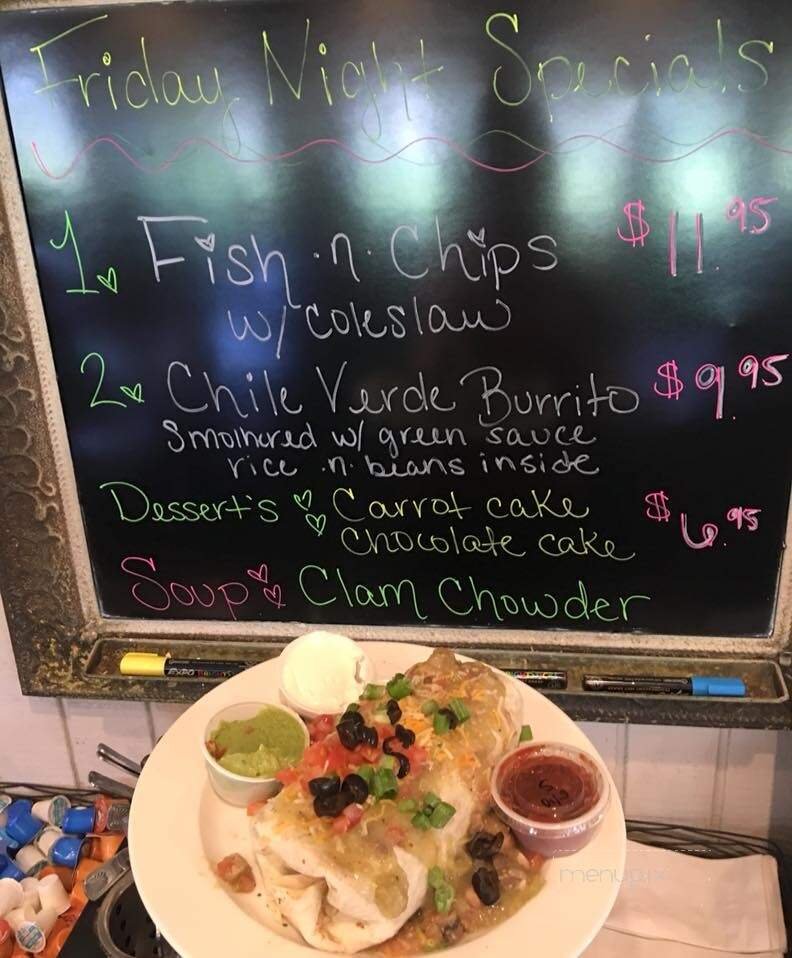 Friday Night Specials
1. Fish .n. Chips $11.95
w/ coleslaw
2. Chile Verde Burrito $9.95
Smothered w/ green sauce
rice .n. beans inside
Dessert's Carrot cake $6.95
Chocolate cake
Soup Clam Chowder
EXPO
menupix